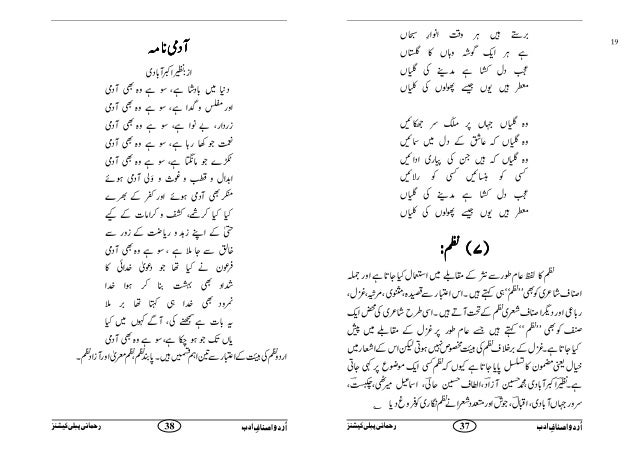 برستے ہیں ہر وقت انوارِ سبحاں
ہے ہر ایک گوشہ وہاں کا گلستاں
عجب دل کشا ہے مدینے کی گلیاں
معطر ہیں یوں جیسے پھولوں کی کلیاں
وہ گلیاں جہاں پر ملک سر جھکائیں
وہ گلیاں کہ عاشق کے دل میں سمائیں
وہ گلیاں کہ ہیں جن کی پیاری ادائیں
کسی کو ہنسائیں کسی کو رلائیں
عجب دل کشا ہے مدینے کی گلیاں
معطر ہیں یوں جیسے پھولوں کی کلیاں
(۷) نظم:
نظم کا لفظ عام طور سے نثر کے مقابلے میں استعمال کیا جاتا ہے اور جملہ
اصناف شاعری کو بھی ’’نظم‘‘ ہی کہتے ہیں۔ اس اعتبار سے قصیدہ، مثنوی، مرثیہ، غزل،
رباعی اور دیگر اصناف شعری نظم کے تحت آتے ہیں۔ اسی طرح شاعری کی محض ایک
صنف کو بھی ’’نظم‘‘ کہتے ہیں جسے عام طور پر غزل کے مقابلے میں پیش
کیا جاتا ہے۔ غزل کے برخلاف نظم کی ہیئت مخصوص نہیں ہوتی لیکن اس کے اشعار میں
خیال یعنی مضمون کا تسلسل پایا جاتا ہے کیوں کہ نظم کسی ایک موضوع پر کہی جاتی
ہے۔ نظیر اکبر آبادی، محمد حسین آزاد، الطاف حسین حالی، اسماعیل میرٹھی، چکبست،
سرور جہاں آبادی، اقبال، جوش اور متعدد شعرا نے نظم نگاری کو فروغ دیا۔
اُردو اصنافِ ادب 37 رحمانی پبلی کیشنز
19
آدمی نامہ
از: نظیر اکبر آبادی
دنیا میں بادشا ہے، سو ہے وہ بھی آدمی
اور مفلس و گدا ہے، سو ہے وہ بھی آدمی
زردار، بے نوا ہے، سو ہے وہ بھی آدمی
نعمت جو کھا رہا ہے، سو ہے وہ بھی آدمی
ٹکڑے جو مانگتا ہے، سو ہے وہ بھی آدمی
ابدال و قطب و غوث و ولی آدمی ہوئے
منکر بھی آدمی ہوئے اور کفر کے بھرے
کیا کیا کرشمے، کشف و کرامات کے کیے
حتیٰ کے اپنے زہد و ریاضت کے زور سے
خالق سے جا ملا ہے، سو ہے وہ بھی آدمی
فرعون نے کیا تھا جو دعویٰ خدائی کا
شداد بھی بہشت بنا کر ہوا خدا
نمرود بھی خدا ہی کہتا تھا بر ملا
یہ بات ہے سمجھنے کی، آگے کہوں میں کیا
یاں تک جو ہو چکا ہے، سو ہے وہ بھی آدمی
اردو نظم کی ہیئت کے اعتبار سے تین اہم قسمیں ہیں۔ پابند نظم، نظم معریٰ اور آزاد نظم۔
اُردو اصنافِ ادب 38 رحمانی پبلی کیشنز